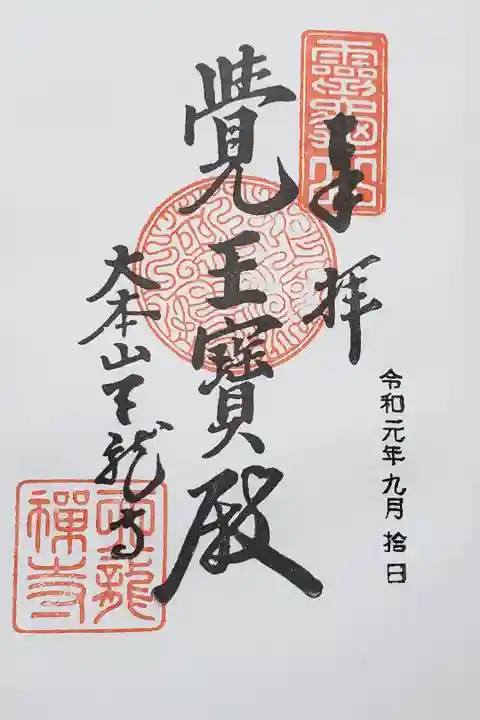 奉拝
令和元年九月拾日
覺王寶殿
大本山天龍寺
靈龜山
天龍禪寺